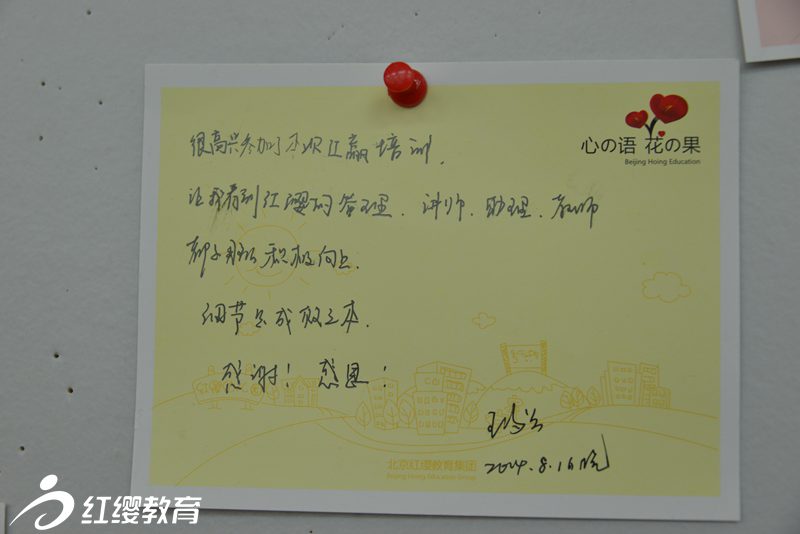 心の语 花の果
Beijing Hoing Education
很高兴参加了本次红赢培训,
让我看到红璎的管理、讲师、助理、教师
都那么积极向上.
细节是成败之本.
感谢！感恩！
2014.8.16晚
北京红缨教育集团
Beijing Hoing Education Group
红缨教育